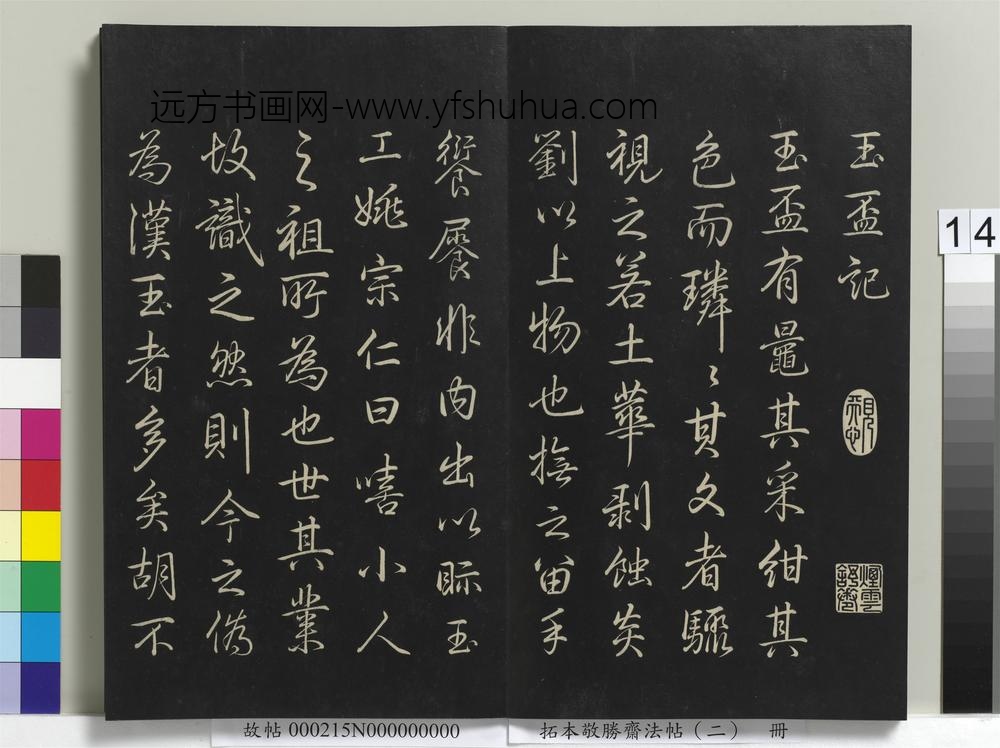 远方书画网-www.yfshuhua.com
玉盃記
煙雲舒卷
玉盃有鼂其采紺其
色而璘〻其文者驟
視之若土華剥蝕炎
劉以上物也撫之留手
非內出以眎玉
工姚宗仁曰嘻小人
之祖所為也世其業
故識之然則今之偽
為漢玉者多矣胡不
14
故帖 000215N000000000
拓本敬勝齋法帖（二） 冊